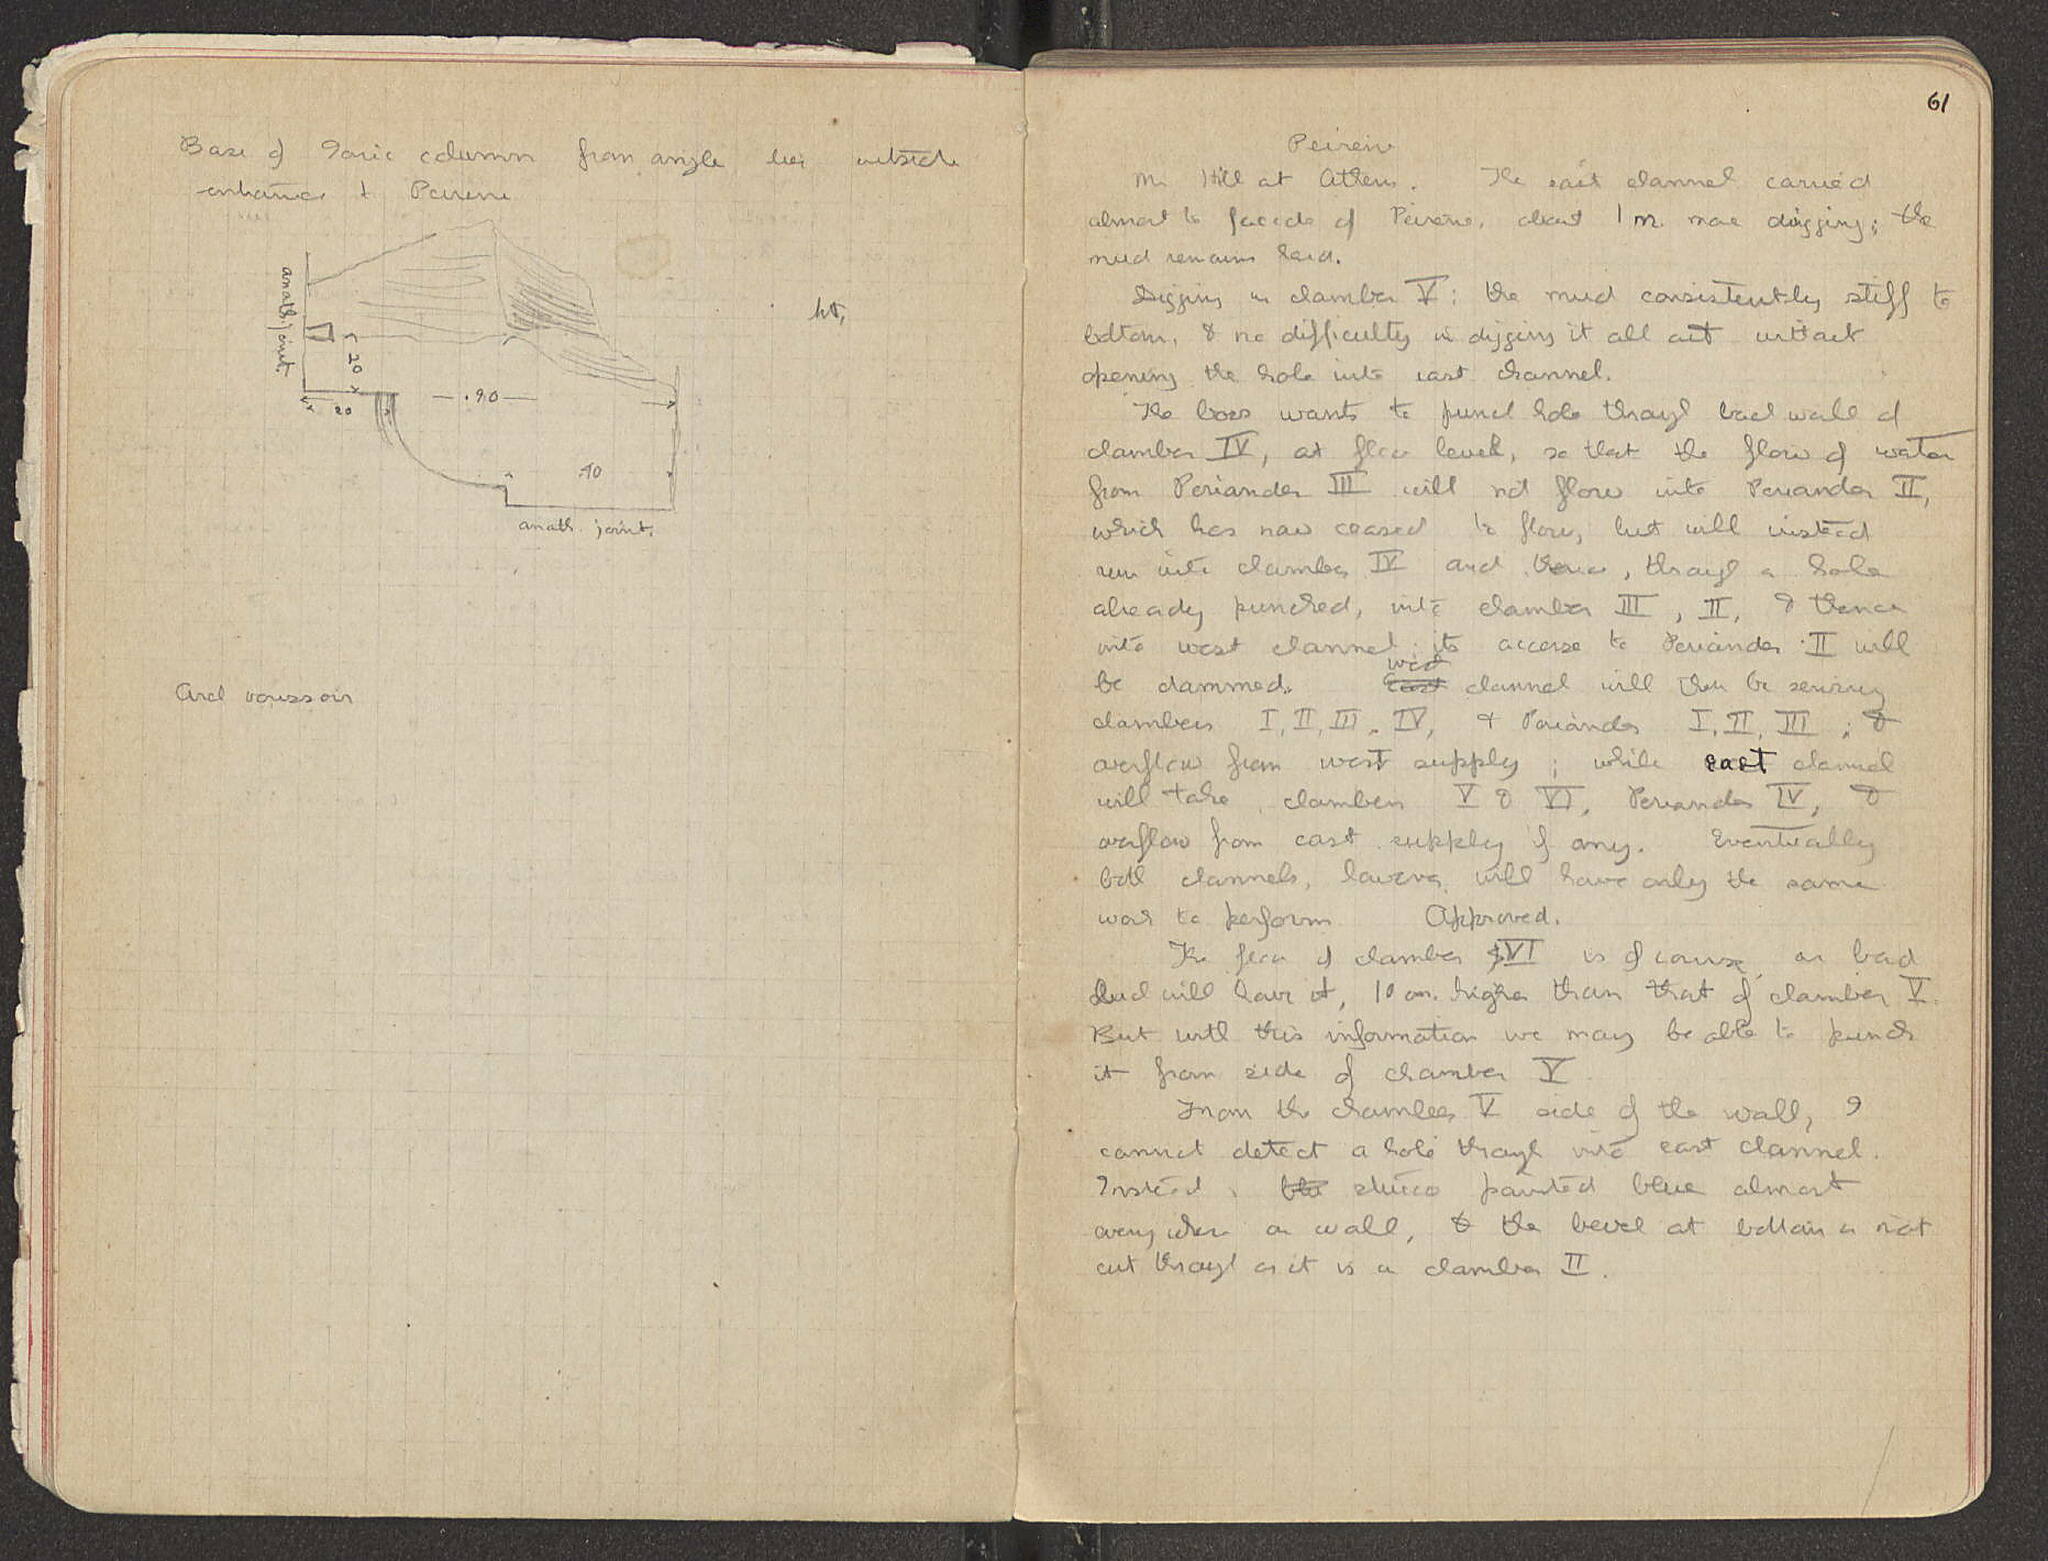 Base of Ionic column from angle lies outside
entrance to Peirene
anath. joint.
ht,
.20
.20
.90
.40
anath. joint.
Arch voussoir
61
Peirene
Mr Hill at Athens. The east channel carried
almost to facade of Peirene, about 1 m. more digging; the
mud remains hard.
Digging in chamber V: the mud consistently stiff to
bottom, & no difficulty in digging it all out without
opening the hole into east channel.
The boss wants to punch hole through back wall of
chamber IV, at floor level, so that the flow of water
from Periander III will not flow into Periander II,
which has now ceased to flow, but will instead
run into chamber IV and thence, through a hole
already punched, into chamber III, II, & thence
into west channel; its access to Periander II will
be dammed. east west channel will then be serving
chambers I, II, III, IV, & Periander I, II, III; &
overflow from west supply; while east channel
will take chambers V & VI, Periander IV, &
overflow from east supply if any. Eventually
both channels, however will have only the same
work to perform Approved.
The floor of chamber VI is of course, as bad
luck will have it, 10 cm. higher than that of chamber V.
But with this information we may be able to punch
it from side of chamber V
From the chamber V side of the wall, I
cannot detect a hole through into east channel.
Instead, blu stucco painted blue almost
everywhere on wall, & the bevel at bottom is not
cut through as it is in chamber II.